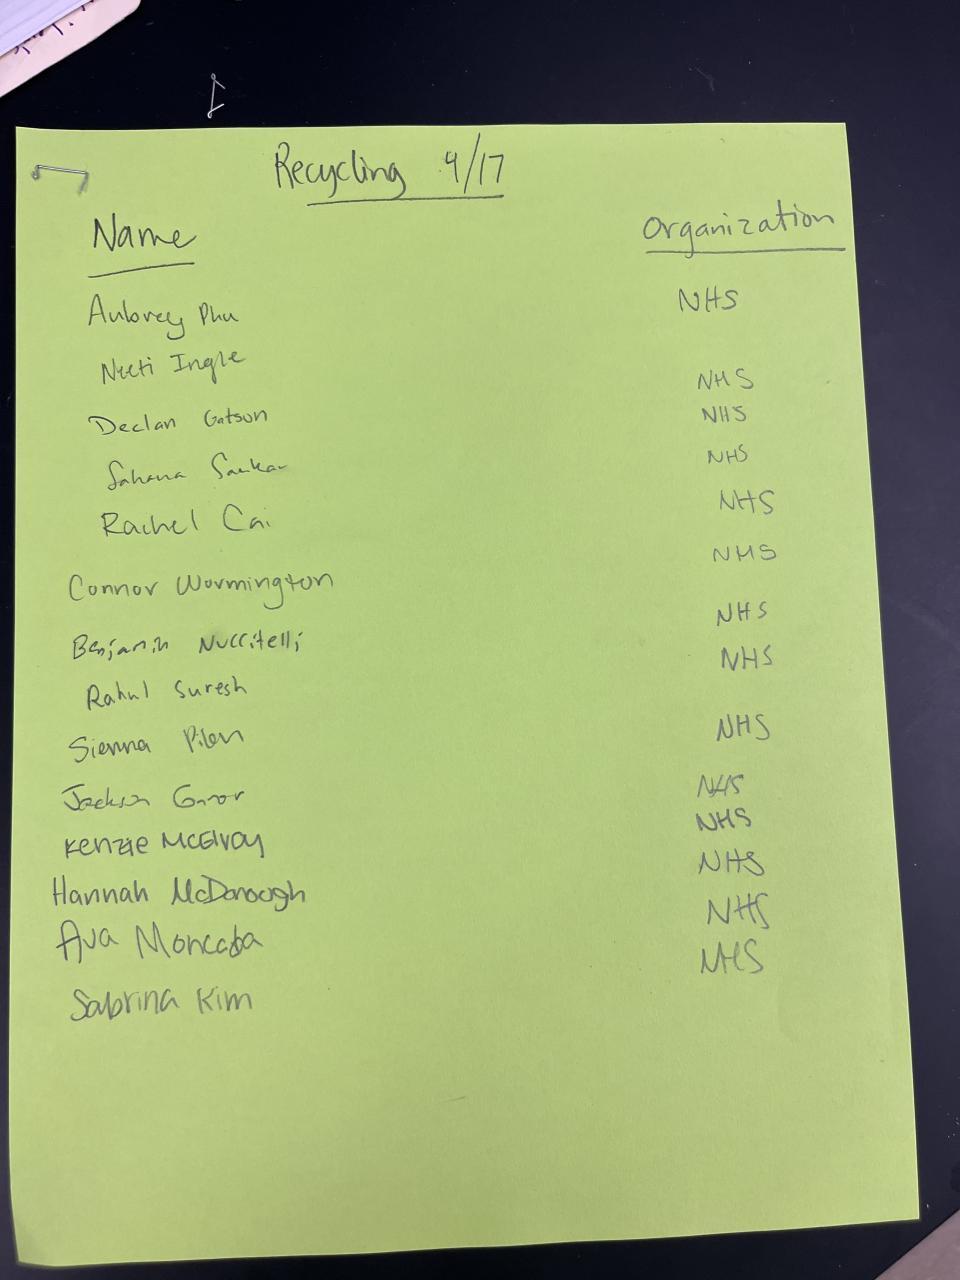 Recycling 9/17
Name Organization
Aubrey Phu NHS
Neeti Ingle NHS
Declan Gatson NHS
Sahana Sankar NHS
Rachel Cai NHS
Connor Wormington NHS
Benjamin Nuccitelli NHS
Rahul Suresh NHS
Sienna Pilon NHS
Jackson NHS
Kenzie McElroy NHS
Hannah McDonough NHS
Ava Moncada NHS
Sabrina Kim NHS